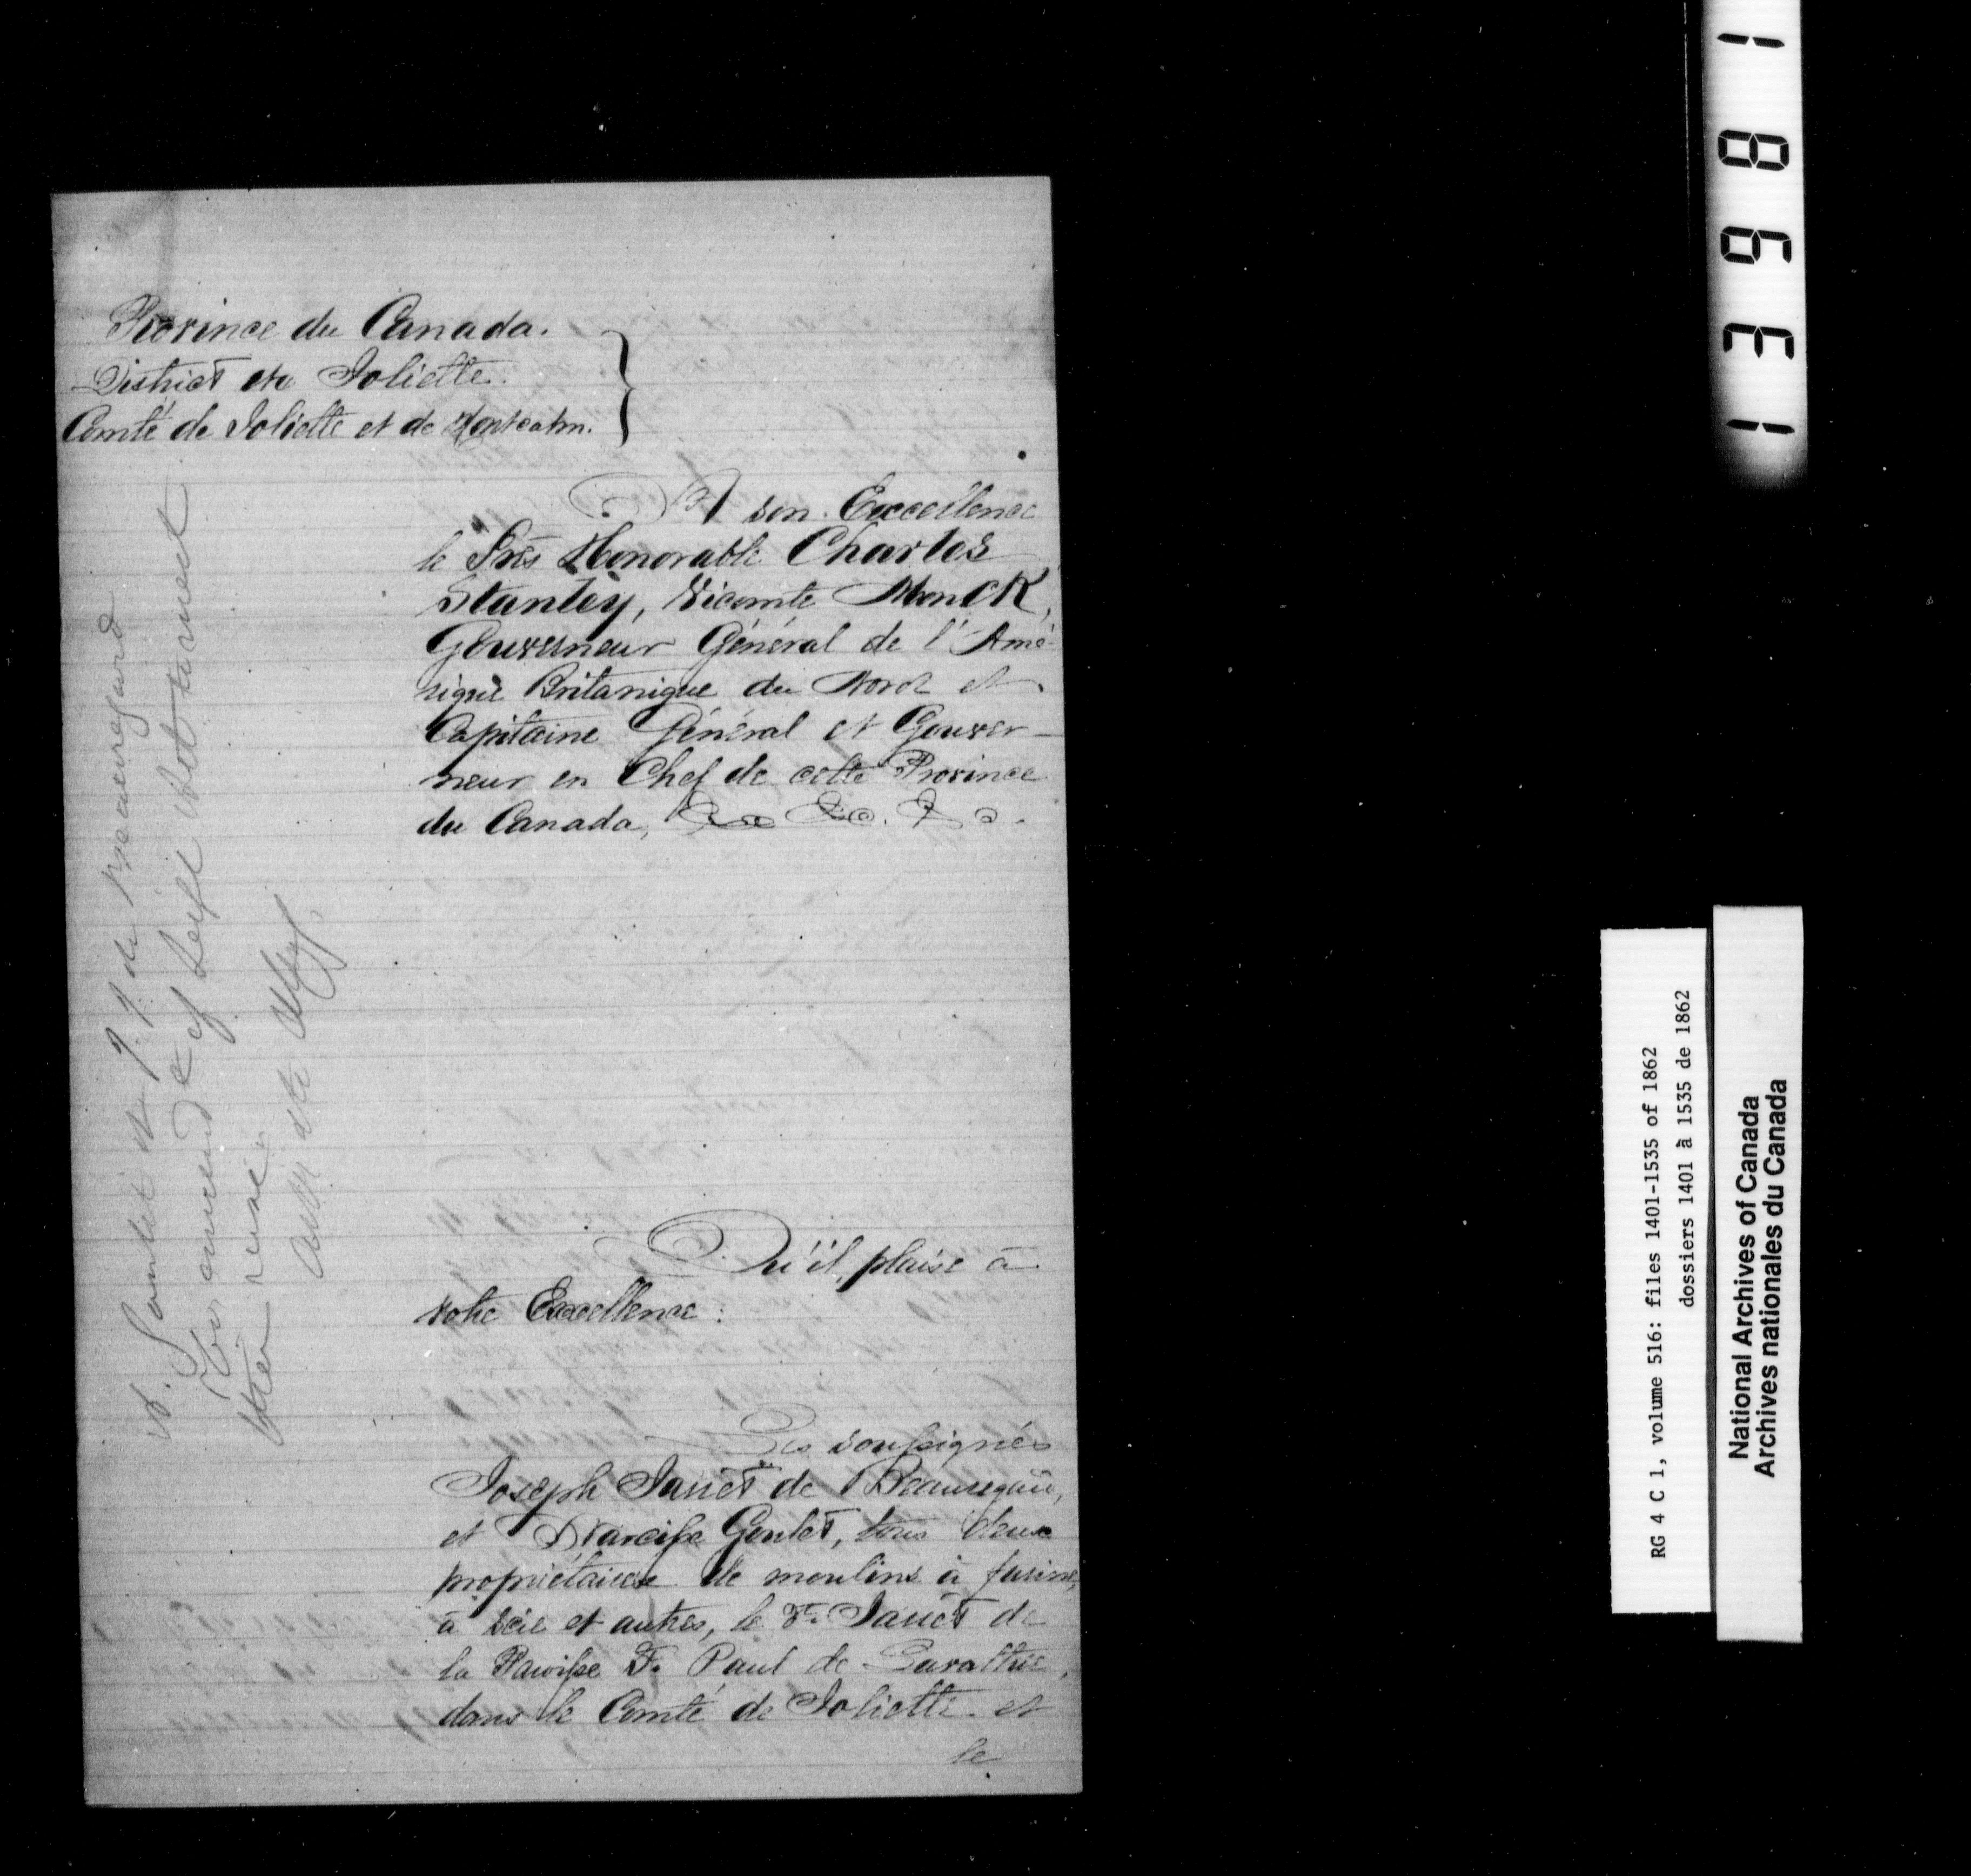 Province du Canada.
District de Joliette.
Comté de Joliette et de Montcalm.
A son Excellence
le Très Honorable Charles
Stanley, Vicomte Monck,
Gouverneur Général de l'Amé-
rique Britanique du Nord et
Capitaine Général et Gouver-
neur en Chef de cette Province
du Canada, &c &c. &c.
Qu'il plaise à
votre Excellence :
Les soussignés
Joseph de Beauregard,
et Narcisse Goulet, tous deux
propriétaires de moulins à farine,
à scie et autres, le Sr. de
la Paroisse St. Paul de Lavaltrie,
dans le Comté de Joliette et
le
N. Goulet et J. J. de Beauregard
1 3 9 8 1
RG 4 C 1, volume 516: files 1401-1535 of 1862
dossiers 1401 à 1535 de 1862
National Archives of Canada
Archives nationales du Canada